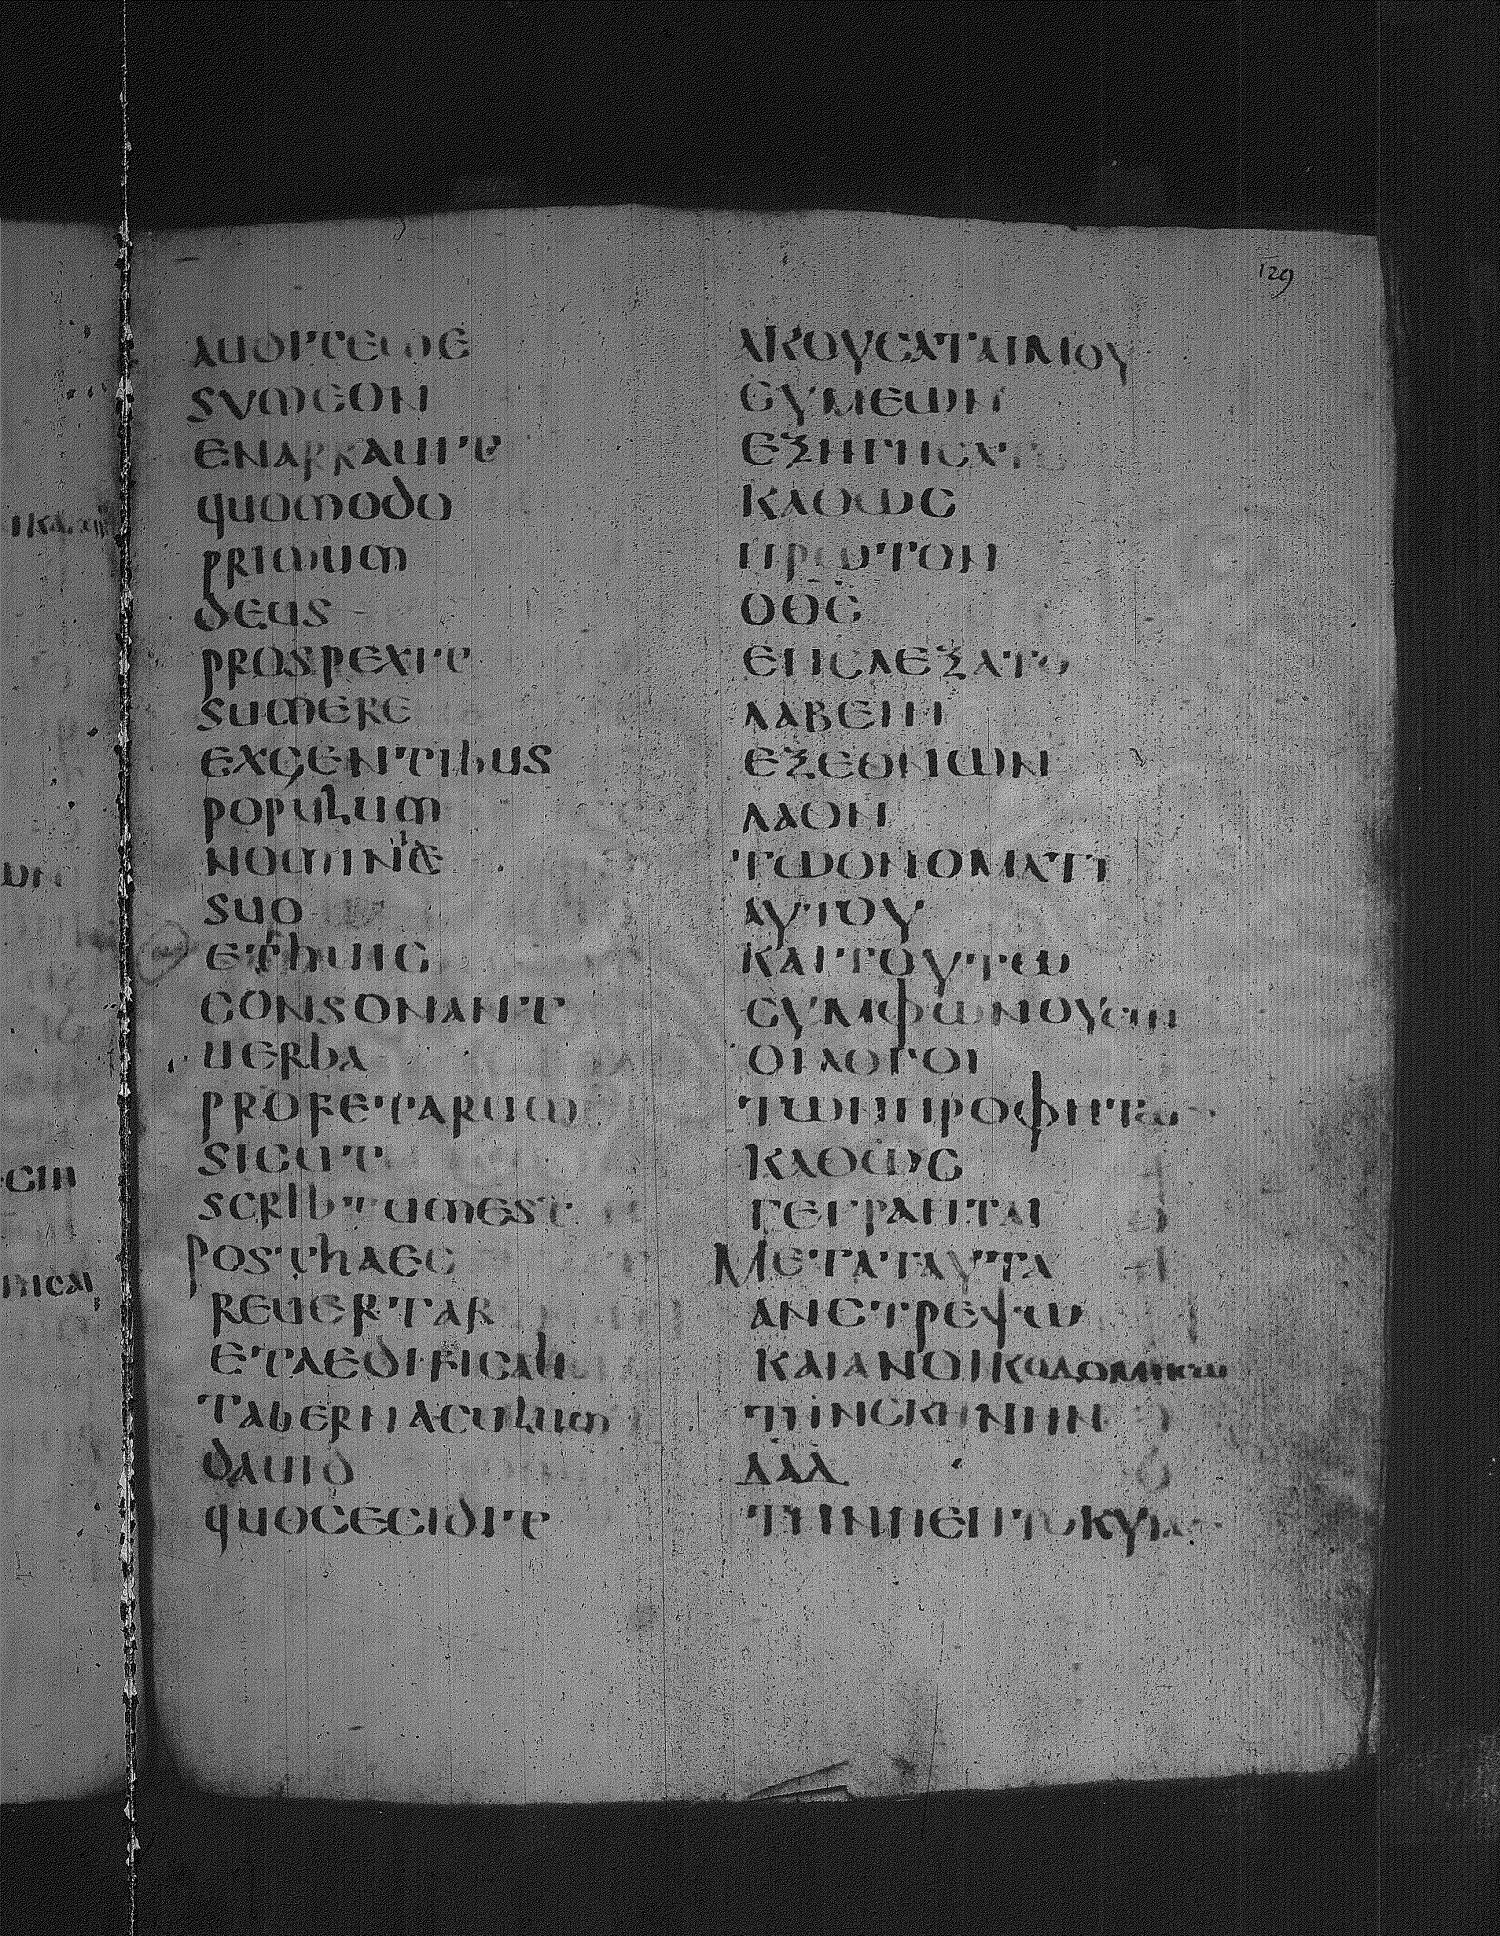 129
AUDITEME
SYMEON
ENARRAUIT
QUOMODO
PRIMUM
DEUS
PROSPEXIT
SUMERE
EXGENTIBUS
POPULUM
NOMINE
SUO
ETHUIC
CONSONANT
UERBA
PROFETARUM
SICUT
SCRIBTUMEST
POSTHAEC
REUERTAR
ETAEDIFICABO
TABERNACULUM
DAUID
QUOCECIDIT
ΑΚΟΥϹΑΤΑΙΜΟΥ
ϹΥΜΕΩΝ
ΕΞΗΓΗϹΑΤΟ
ΚΑΘΩϹ
ΠΡΩΤΟΝ
ΟΘϹ
ΕΠΕΛΕΞΑΤΟ
ΛΑΒΕΙΝ
ΕΞΕΘΝΩΝ
ΛΑΟΝ
ΤΩΟΝΟΜΑΤΙ
ΑΥΤΟΥ
ΚΑΙΤΟΥΤΩ
ϹΥΜΦΩΝΟΥϹΙΝ
ΟΙΛΟΓΟΙ
ΤΩΝΠΡΟΦΗΤΩΝ
ΚΑΘΩϹ
ΓΕΓΡΑΠΤΑΙ
ΜΕΤΑΤΑΥΤΑ
ΑΝΕΤΡΕΨΩ
ΚΑΙΑΝΟΙΚΟΔΟΜΗϹΩ
ΤΗΝϹΚΗΝΗΝ
ΔΑΔ
ΤΗΝΠΕΠΤΩΚΥΙΑΝ